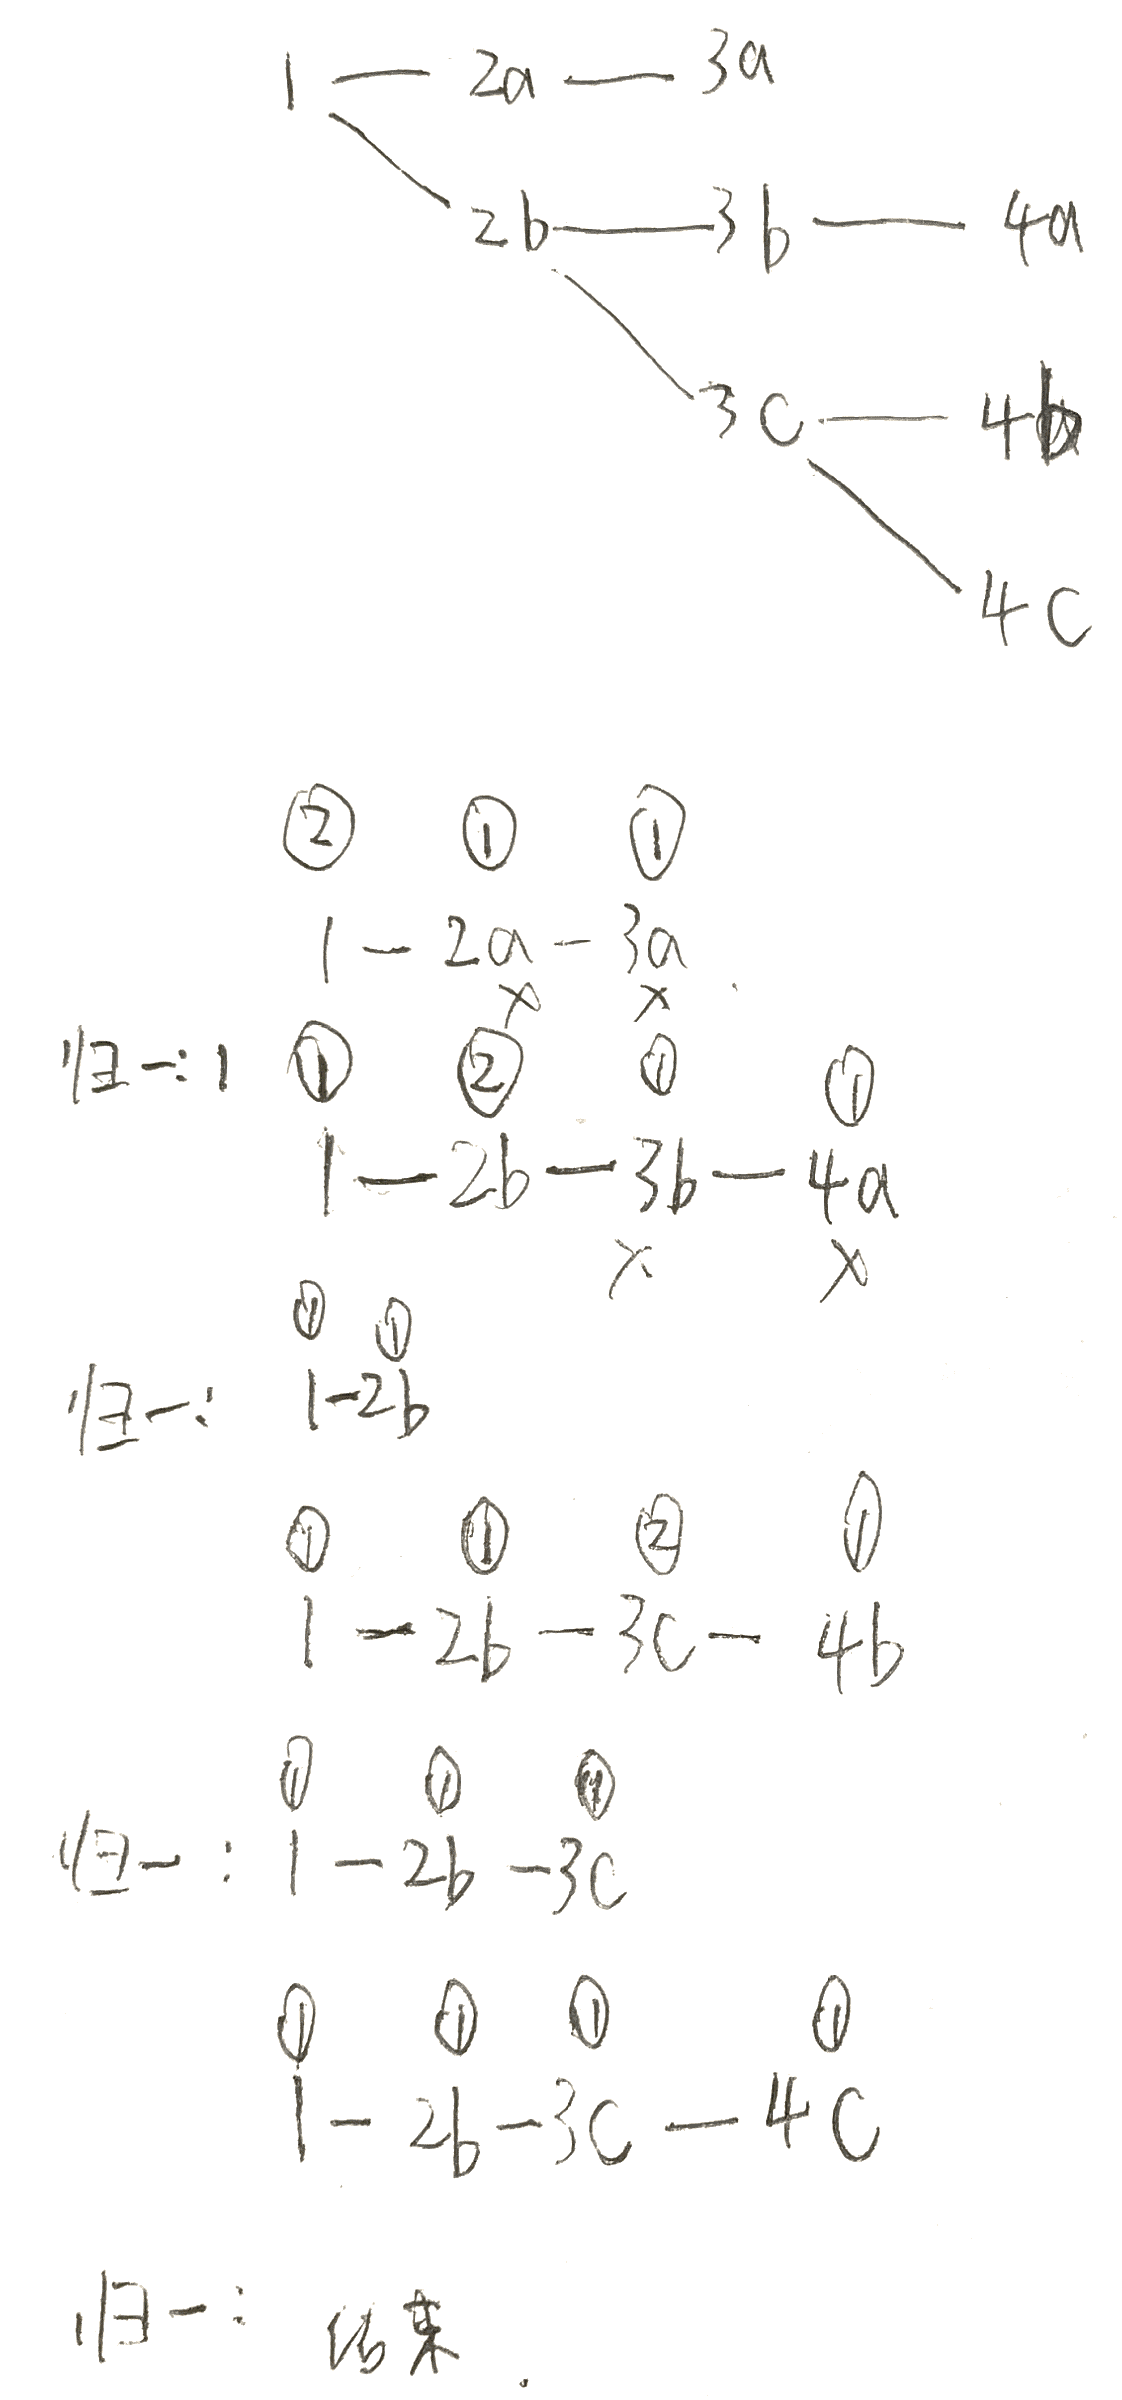 1 — 2a — 3a
2b — 3b — 4a
3c — 4b
4c
② ① ①
1 — 2a — 3a
x x
归一: 1 ① ② ① ①
1 — 2b — 3b — 4a
x x
① ①
归一: 1 — 2b
① ① ② ①
1 — 2b — 3c — 4b
① ① ①
归一: 1 — 2b — 3c
① ① ① ①
1 — 2b — 3c — 4c
归一: 结束.